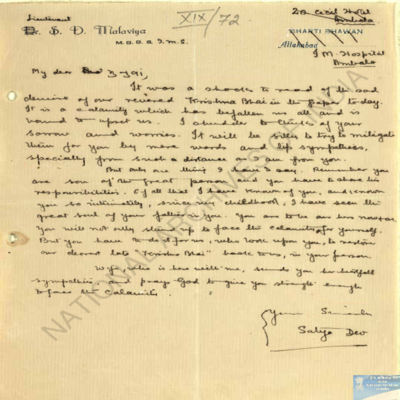 Lieutenant
Dr. S. D. Malaviya
M.B.B.S. I.M.S.
XIX/72
Cecil Hotel
Ambala
BHARTI BHAWAN
Allahabad
I. M. Hospital
Ambala
My dear
It was a shock to read of the sad
demise of our revered Krishna Bhai in the paper today.
It is a calamity which has befallen us all and is
bound to upset us. I shudder to think of your
sorrow and worries. It will be silly to try to mitigate
them for you by mere words and lip sympathies,
specially from such a distance as I am from you.
But only one thing I can say. Remember you
are son of the great person and you have to share his
responsibilities. Of all that I have known of you, and known
you so intimately, since my childhood, I have seen the
great soul of your father in you. You are to be our hero now.
You will not only steel up to face the calamity for yourself.
But you have to do it for us, who look upon you, to restore
our dear late "Krishna Bhai" back to us, in your person.
Wife, who is here with me, sends you her heartfelt
sympathies, and prays God to give you strength enough
to face the calamity.
Yours Sincerely
Satya Dev
NATIONAL ARCHIVES OF INDIA